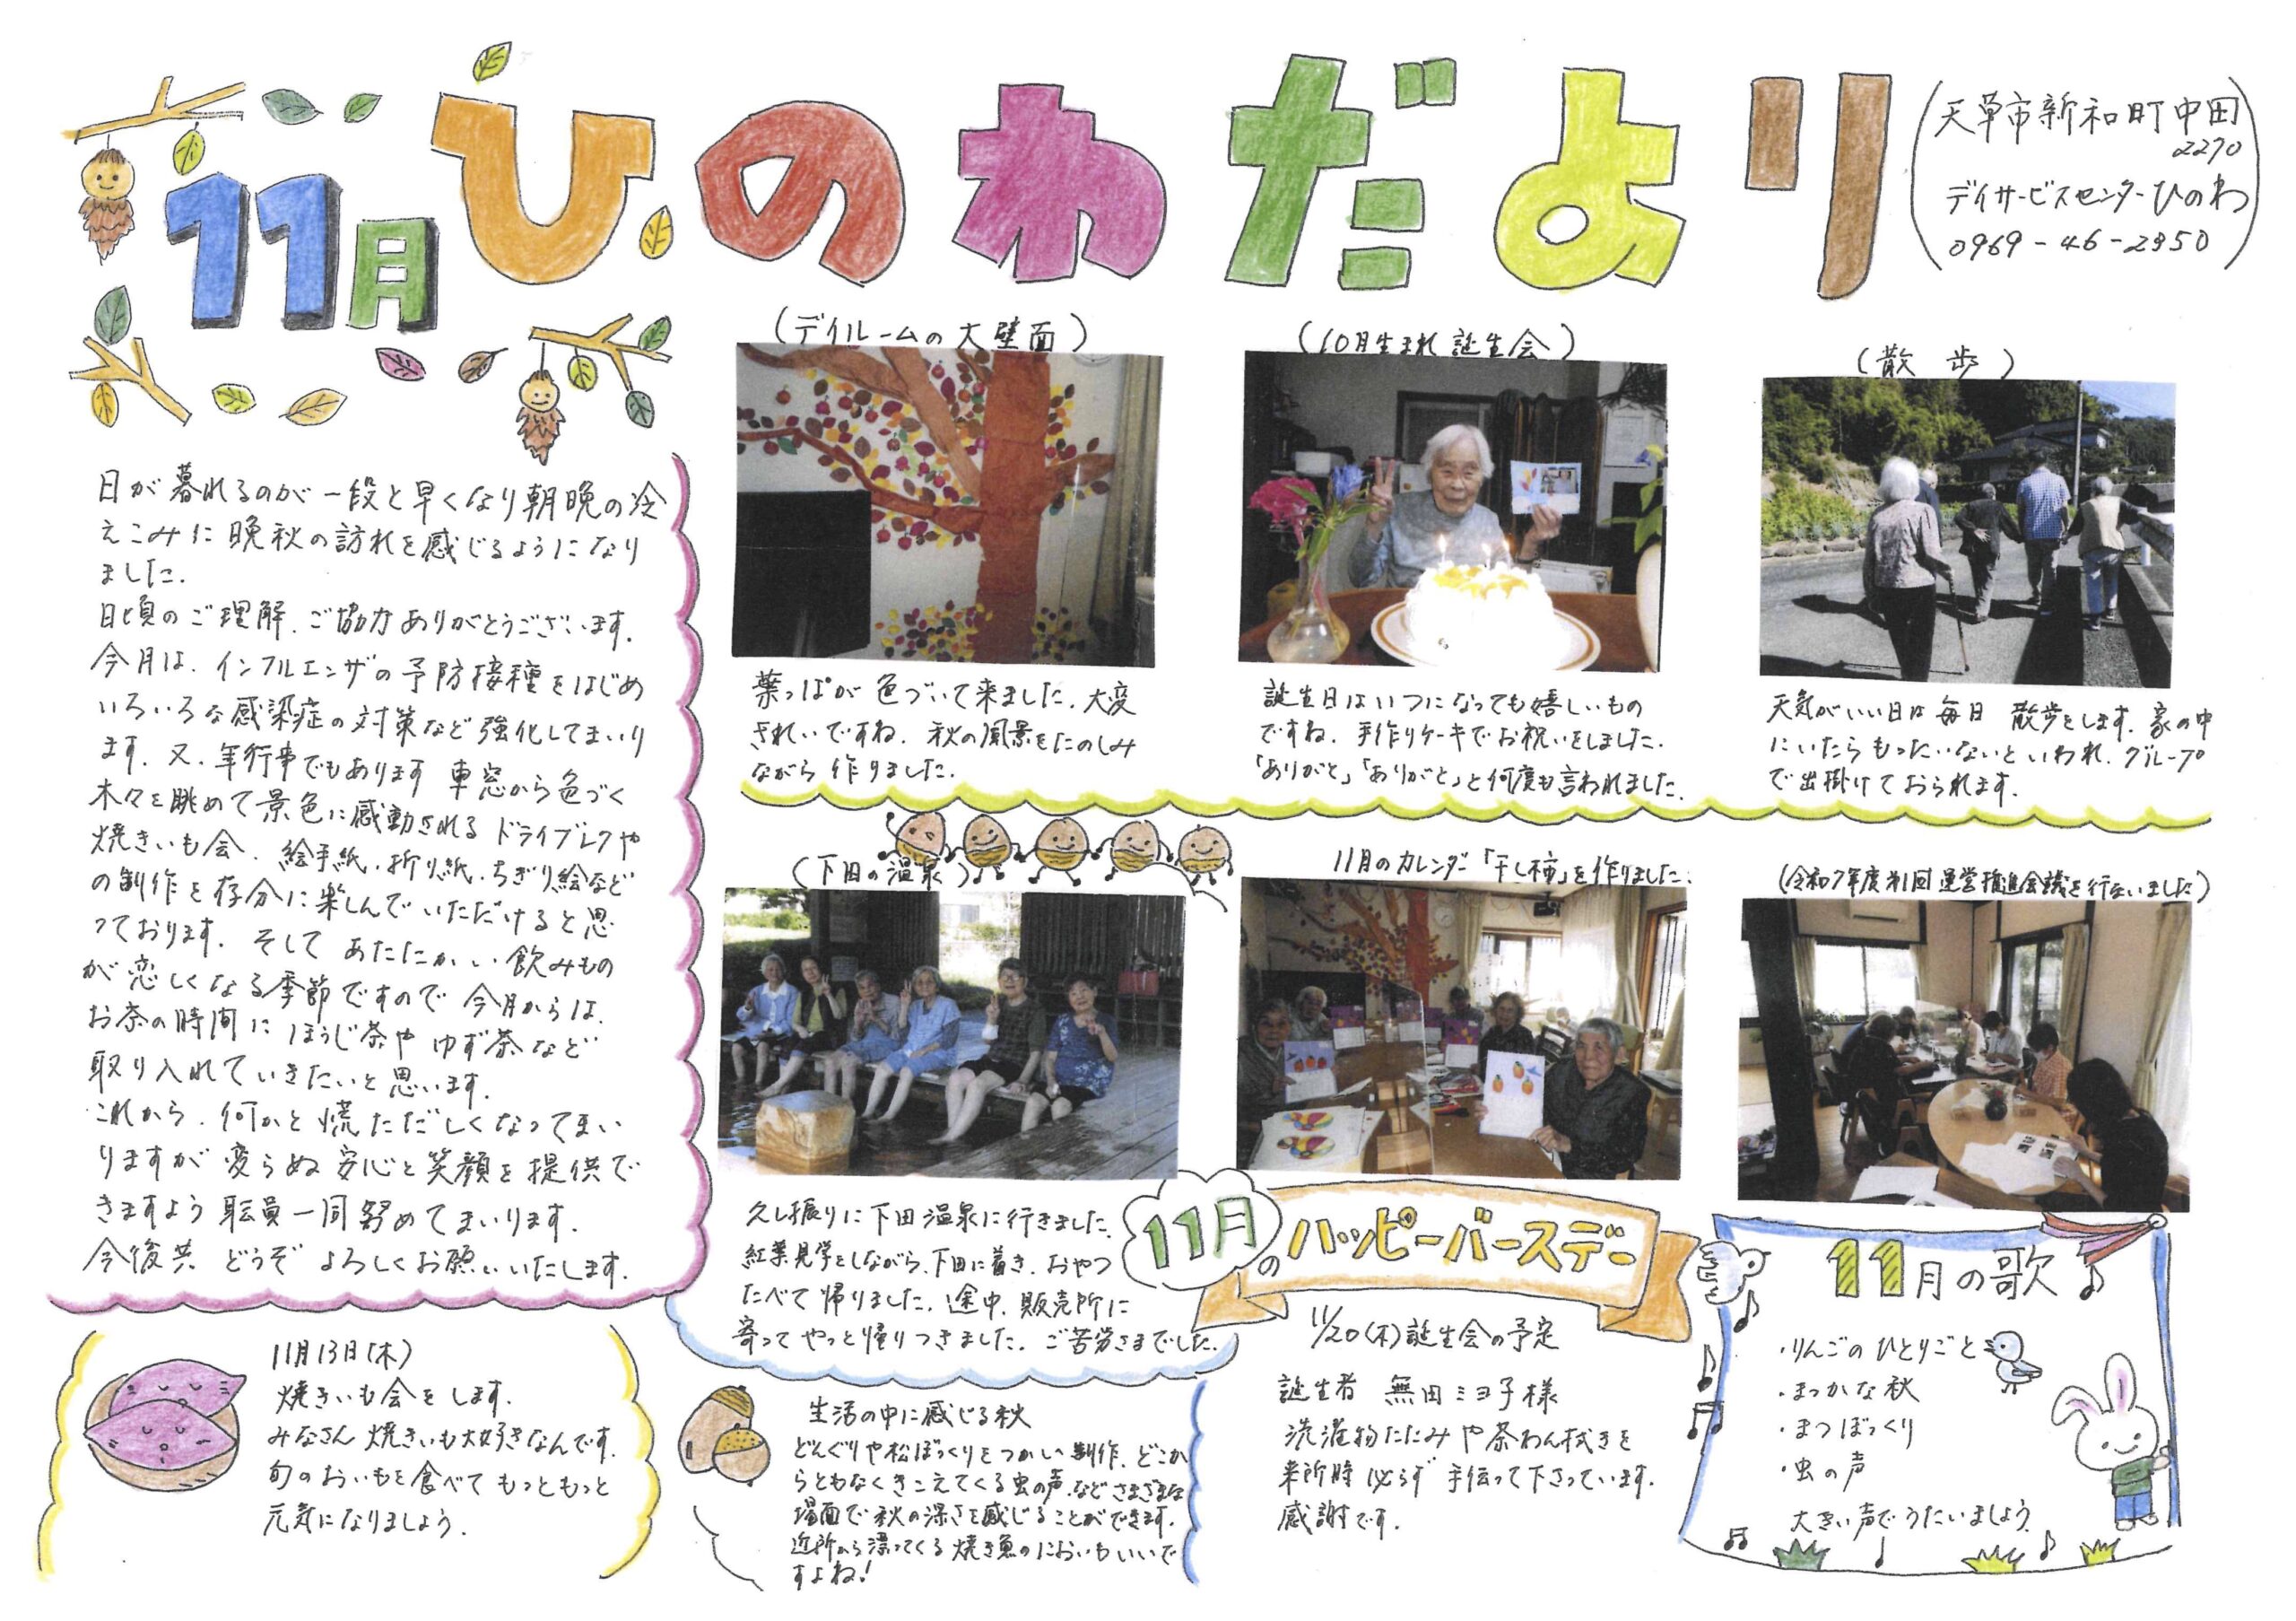 11月
ひのわだより
天草市新和町中田
2270
デイサービスセンターひのわ
0969-46-2950
日が暮れるのが一段と早くなり朝晩の冷
えこみに晩秋の訪れを感じるようになり
ました.
日頃のご理解、ご協力ありがとうございます.
今月は、インフルエンザの予防接種をはじめ
いろいろな感染症の対策など強化してまいり
ます. 又、年行事でもあります 車窓から色づく
木々を眺めて景色に感動されるドライブレクや
焼きいも会、絵手紙、折り紙、ちぎり絵など
の制作を存分に楽しんでいただけると思
っております. そして あたたかい飲みもの
が恋しくなる季節ですので 今月からは、
お茶の時間に ほうじ茶や ゆず茶など
取り入れていきたいと思います.
これから、何かと慌ただしくなってまい
りますが 変らぬ 安心と笑顔を提供で
きますよう 職員一同 努めてまいります.
今後共 どうぞ よろしくお願いいたします.
(デイルームの大壁面)
葉っぱが 色づいて来ました. 大変
きれいですね. 秋の風景をたのしみ
ながら 作りました.
(10月生まれ 誕生会)
誕生日はいつになっても嬉しいもの
ですね. 手作りケーキでお祝いをしました.
「ありがと」「ありがと」と何度も言われました.
(散歩)
天気がいい日は 毎日 散歩をします. 家の中
にいたら もったいないと いわれ、グループ
で出掛けておられます.
(下田の温泉)
久し振りに 下田温泉に行きました.
紅葉見学をしながら、下田に着き、おやつ
たべて 帰りました. 途中、販売所に
寄って やっと帰りつきました. ご苦労さまでした.
11月のカレンダー「干し柿」を作りました.
(令和7年度第1回 運営推進会議を行ないました)
11月13日(木)
焼きいも会を します.
みなさん 焼きいも大好きなんです.
旬のおいもを食べて もっともっと
元気になりましょう.
生活の中に感じる秋
どんぐりや松ぼっくりをつかい制作、どこか
らともなくきこえてくる虫の声、など さまざまな
場面で 秋の深さを感じることができます.
近所から漂ってくる 焼き魚のにおいも いいで
すよね!
11月のハッピーバースデー
11/20(木)誕生会の予定
誕生者 無田ミヨ子様
洗濯物たたみや茶わん拭きを
来所時 必らず 手伝って下さっています.
感謝です.
11月の歌♪
・りんごのひとりごと
・まっかな秋
・まつぼっくり
・虫の声
大きい声で うたいましょう